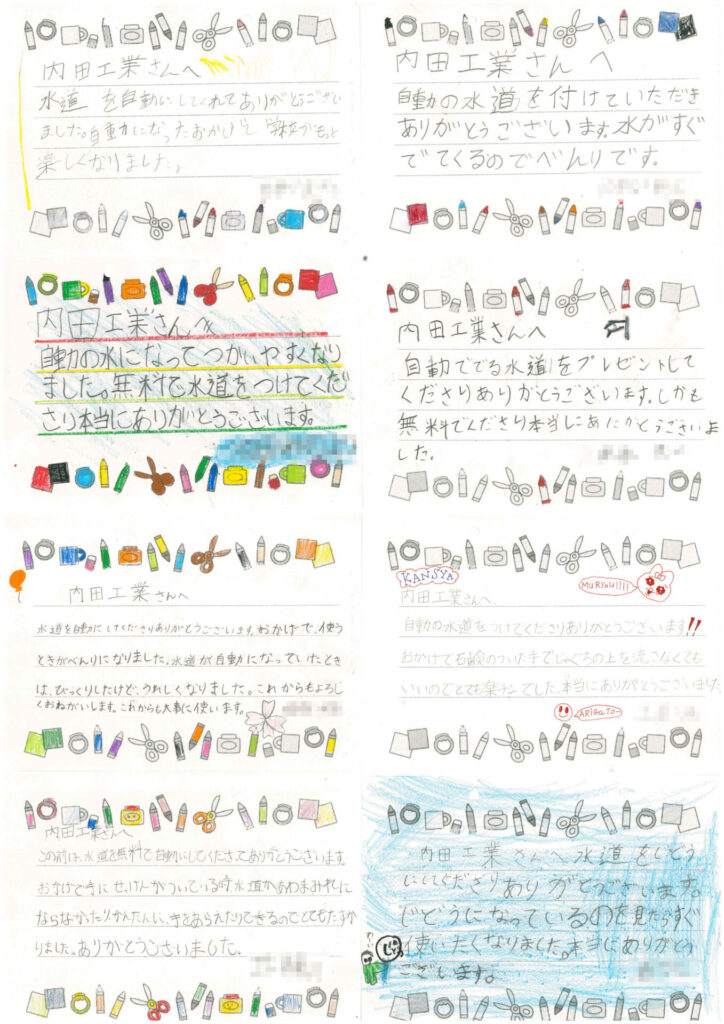 内田工業さんへ
水道を自動にしてくれてありがとうござい
ました。自動になったおかげで学校がもっと
楽しくなりました。
内田工業さんへ
自動の水道を付けていただき
ありがとうございます。水がすぐ
でてくるのでべんりです。
内田工業さんへ
自動の水になってつかいやすくなり
ました。無料で水道をつけてくだ
さり本当にありがとうございます。
内田工業さんへ
自動ででる水道をプレゼントして
くださりありがとうございます。しかも
無料でくださり本当にありがとうございま
した。
内田工業さんへ
水道を自動にしてくださりありがとうございます。おかげで、使う
ときがべんりになりました。水道が自動になっていたとき
は、びっくりしたけど、うれしくなりました。これからもよろし
くおねがいします。これからも大事に使います。
KANSYA
MURYOU!!!!
内田工業さんへ
自動の水道をつけてくださりありがとうございます!!
おかげで石鹸のついた手でじゃぐちの上を流さなくても
いいのでとても楽チンでした。本当にありがとうございました
ARIGATO-
内田工業さんへ
この前は、水道を無料で自動にしてくださってありがとうございます
おかげで手にせっけんがついている時水道があわまみれに
ならなかったりかんたんに、手をあらえたりできるのでとてもたすか
りました。ありがとうございました。
内田工業さんへ水道をじどう
にしてくださりありがとうございます。
じどうになっているのを見たらすぐ
使いたくなりました。本当にありがとう
ございます。